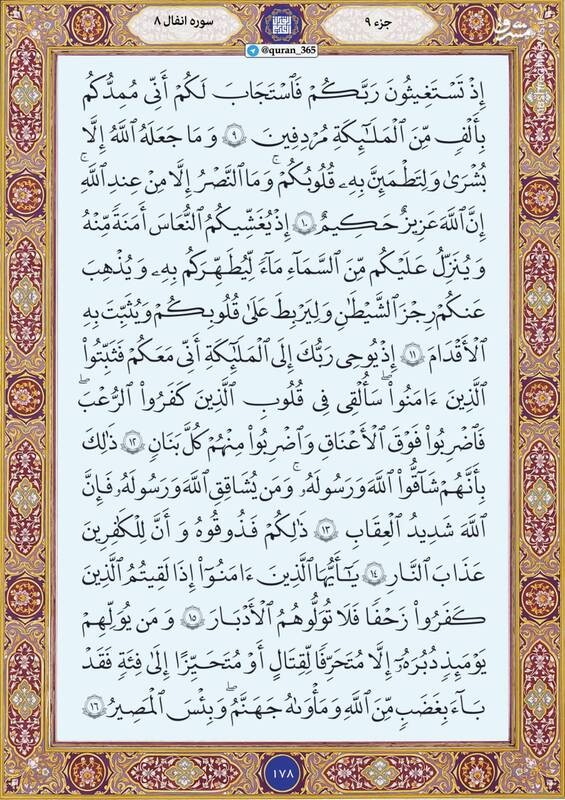 جزء ۹
سوره انفال ۸
@quran_365
مشرق
mashreghnews.ir
إِذْ تَسْتَغِيثُونَ رَبَّكُمْ فَٱسْتَجَابَ لَكُمْ أَنِّى مُمِدُّكُم
بِأَلْفٍ مِّنَ ٱلْمَلَٰٓئِكَةِ مُرْدِفِينَ ۹ وَمَا جَعَلَهُ ٱللَّهُ إِلَّا
بُشْرَىٰ وَلِتَطْمَئِنَّ بِهِۦ قُلُوبُكُمْ ۚ وَمَا ٱلنَّصْرُ إِلَّا مِنْ عِندِ ٱللَّهِ ۚ
إِنَّ ٱللَّهَ عَزِيزٌ حَكِيمٌ ۱۰ إِذْ يُغَشِّيكُمُ ٱلنُّعَاسَ أَمَنَةً مِّنْهُ
وَيُنَزِّلُ عَلَيْكُم مِّنَ ٱلسَّمَآءِ مَآءً لِّيُطَهِّرَكُم بِهِۦ وَيُذْهِبَ
عَنكُمْ رِجْزَ ٱلشَّيْطَٰنِ وَلِيَرْبِطَ عَلَىٰ قُلُوبِكُمْ وَيُثَبِّتَ بِهِ
ٱلْأَقْدَامَ ۱۱ إِذْ يُوحِى رَبُّكَ إِلَى ٱلْمَلَٰٓئِكَةِ أَنِّى مَعَكُمْ فَثَبِّتُوا۟
ٱلَّذِينَ ءَامَنُوا۟ ۚ سَأُلْقِى فِى قُلُوبِ ٱلَّذِينَ كَفَرُوا۟ ٱلرُّعْبَ
فَٱضْرِبُوا۟ فَوْقَ ٱلْأَعْنَاقِ وَٱضْرِبُوا۟ مِنْهُمْ كُلَّ بَنَانٍ ۱۲ ذَٰلِكَ
بِأَنَّهُمْ شَآقُّوا۟ ٱللَّهَ وَرَسُولَهُۥ ۚ وَمَن يُشَاقِقِ ٱللَّهَ وَرَسُولَهُۥ فَإِنَّ
ٱللَّهَ شَدِيدُ ٱلْعِقَابِ ۱۳ ذَٰلِكُمْ فَذُوقُوهُ وَأَنَّ لِلْكَٰفِرِينَ
عَذَابَ ٱلنَّارِ ۱۴ يَٰٓأَيُّهَا ٱلَّذِينَ ءَامَنُوٓا۟ إِذَا لَقِيتُمُ ٱلَّذِينَ
كَفَرُوا۟ زَحْفًا فَلَا تُوَلُّوهُمُ ٱلْأَدْبَارَ ۱۵ وَمَن يُوَلِّهِمْ
يَوْمَئِذٍ دُبُرَهُۥٓ إِلَّا مُتَحَرِّفًا لِّقِتَالٍ أَوْ مُتَحَيِّزًا إِلَىٰ فِئَةٍ فَقَدْ
بَآءَ بِغَضَبٍ مِّنَ ٱللَّهِ وَمَأْوَىٰهُ جَهَنَّمُ ۖ وَبِئْسَ ٱلْمَصِيرُ ۱۶
۱۷۸